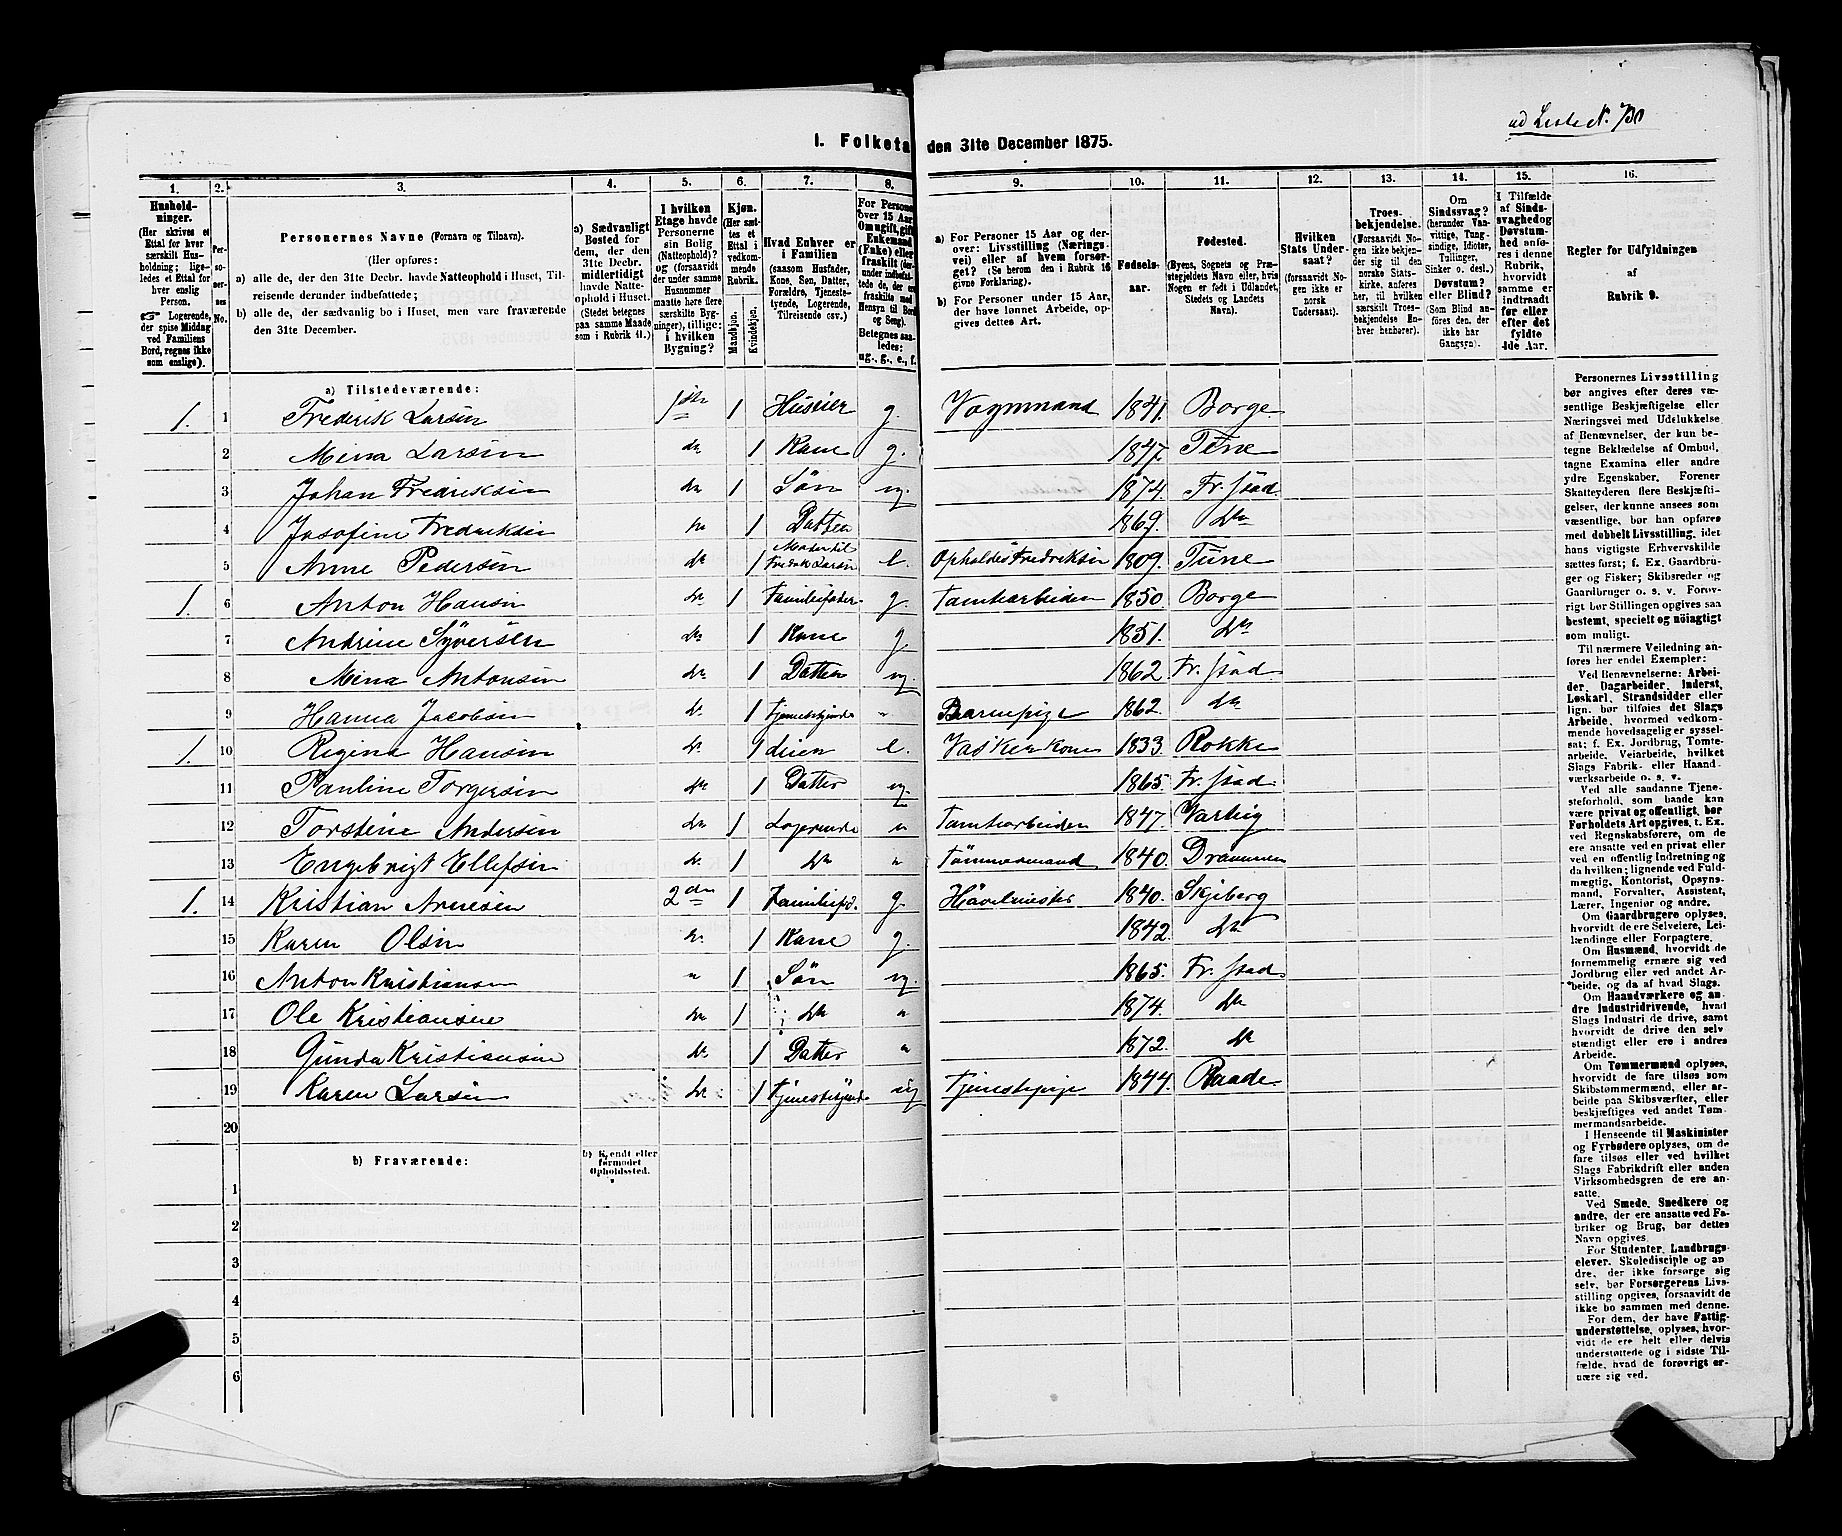 ad Liste No. 730
I. Folketa den 31te December 1875.
1. 2. 3. 4. 5. 6. 7. 8. 9. 10. 11. 12. 13. 14. 15. 16.
Hushold-
ninger.
(Her skrives et
Ettal for hver
særskilt Hus-
holdning; lige-
ledes et Ettal for
hver enslig
Person.
☞ Logerende,
der spise Middag
ved Familiens
Bord, regnes ikke
som enslige).
Per-
so-
ner-
nes
No.
Personernes Navne (Fornavn og Tilnavn).
(Her opføres:
a) alle de, der den 31te Decbr. havde Natteophold i Huset, Til-
reisende derunder indbefattede;
b) alle de, der sædvanlig bo i Huset, men vare fraværende
den 31te December.
a) Sædvanligt
Bosted for
dem, der den
31te Decbr.
midlertidigt
havde Natte-
ophold i Huset.
(Stedet betegnes
paa samme Maade
som i Rubrik 11.)
I hvilken
Etage havde
Personerne
sin Bolig
(Natteophold)?
og (forsaavidt
der under samme
Husnummer
maatte høre flere
særskilte Byg-
ninger), tillige:
i hvilken
Bygning?
Kjøn.
(Her sæt-
tes et
Ettal i
vedkom-
mende
Rubrik.
Mandkjøn.
Kvindekjøn.
Hvad Enhver er
i Familien
(saasom Husfader,
Kone, Søn, Datter,
Forældre, Tjeneste-
tyende, Logerende,
Tilreisende osv.)
For Personer
over 15 Aar
Om ugift, gift,
Enkemand
(Enke) eller
fraskilt
Betegnes saa-
ledes:
ug., g., e., f.
a) For Personer 15 Aar og der-
over: Livsstilling (Nærings-
vei) eller af hvem forsør-
get? (Se herom den i Rubrik 16
givne Forklaring).
b) For Personer under 15 Aar,
der have lønnet Arbeide, op-
gives dettes Art.
Fødsels-
aar.
Fødested.
(Byens, Sognets og Præ-
stegjeldets Navn eller, hvis
Nogen er født i Udlandet,
Stedets og Landets
Navn).
Hvilken
Stats Under-
saat?
(forsaavidt No-
gen ikke er
norsk
Undersaat).
Troes-
bekjendelse.
(Forsaavidt No-
gen ikke bekjen-
der sig til den
norske Stats-
kirke, anføres
her, til hvilken
særskilt Troes-
bekjendelse En-
hver henhører).
Om
Sindssvag?
(herunder Van-
vittige, Tung-
sindige, Idioter,
Tullinger,
Sinker o. desl.)
Døvstum?
eller Blind?
(Som Blind an-
føres den, der
ikke har
Gangsyn).
I Tilfælde
af Sinds-
svaghed og
Døvstum-
hed anfø-
res i denne
Rubrik,
hvorvidt
samme er
indtraadt
før eller
efter det
fyldte
4de Aar.
Regler for Udfyldningen
af
Rubrik 9.
a) Tilstedeværende:
1. 1 Frederik Larsen 1ste 1 Huseier g. Vognmand 1841. Borge
2 Mina Larsen do 1 Kone g. 1847. Tune
3 Johan Fredriksen do 1 Søn ug. 1874. Fr. stad
4 Josefine Fredriksen do 1 Datter 1869. do
5 Anne Pedersen do 1 Moder til Fredrik Larsen e. Opholdes Fredriksen 1809. Tune
1. 6 Anton Hansen do 1 Familiefader g. Tomtearbeider 1850. Borge
7 Andrine Syversen do 1 Kone g 1851. do
8 Mina Antonsen do 1 Datter ug. 1862 Fr. stad
9 Hanna Jacobsen do 1 Tjenestetyende " Barnepige 1862. do
1. 10 Regina Hansen do 1 e. Vaskerkone 1833. Rokke
11 Pauline Torgersen do 1 Datter ug. 1865. Fr. stad
12 Torstene Andersen do 1 Logerende " Tomtearbeider 1847. Varteig
13 Engebrigt Ellefsen do 1 do " Tømmermand 1840. Drammen
1. 14 Kristian Arnesen 2den 1 Familiefd. g. Høvelmester 1840. Skjeberg
15 Karen Olsen do 1 Kone g. 1842. do
16 Anton Kristiansen " 1 Søn ug. 1865. Fr. stad
17 Ole Kristiansen do 1 do " 1874. do
18 Gunda Kristiansen do 1 Datter " 1872. do
19 Karen Larsen do 1 Tjenestetyende ug Tjenestepige 1844. Raade
20
b) Fraværende:
b) Kjendt eller
formodet
Opholdssted.
1
2
3
4
5
6
Personernes Livsstilling
bør angives efter deres væ-
sentlige Beskjæftigelse eller
Næringsvei med Udelukkelse
af Benævnelser, der kun be-
tegne Beklædelse af Ombud,
tagne Examina eller andre
ydre Egenskaber. Forener
Skatteyderen flere Beskjæfti-
gelser, der kunne ansees som
væsentlige, bør han opføres
med dobbelt Livsstilling, idet
hans vigtigste Erhvervskilde
sættes først; f. Ex. Gaardbru-
ger og Fisker; Skibsreder og
Gaardbruger o. s. v. Forøv-
rigt bør Stillingen opgives saa
bestemt, specielt og nøiagtigt
som muligt.
Til nærmere Veiledning an-
føres her endel Exempler:
Ved Benævnelserne: Arbei-
der, Dagarbeider, Inderst,
Løskarl, Strandsidder eller
lign. bør tilføies det Slags
Arbeide, hvormed vedkom-
mende hovedsagelig er syssel-
sat; f. Ex. Jordbrug, Tomte-
arbeide, Veiarbeide, hvilket
Slags Fabrik- eller Haand-
værksarbeide o. s. v.
Ved alle saadanne Tjene-
steforhold, som baade kan
være privat og offentligt, bør
Forholdets Art opgives, t. Ex.
ved Regnskabsførere, om de
ere ansatte ved en privat eller
ved en offentlig Indretning og
da hvilken; lignende ved Fuld-
mægtig, Kontorist, Opsyns-
mand, Forvalter, Assistent,
Lærer, Ingeniør og andre.
Om Gaardbrugere oplyses,
hvorvidt de ere Selveiere, Lei-
lændinge eller Forpagtere.
Om Husmænd, hvorvidt de
fornemmelig ernære sig ved
Jordbrug eller ved andet Ar-
beide, og da af hvad Slags.
Om Haandværkere og an-
dre Industridrivende, hvad
Slags Industri de drive, samt
hvorvidt de drive den selv-
stændigt eller ere i andres
Arbeide.
Om Tømmermænd oplyses,
hvorvidt de fare tilsøs som
Skibstømmermænd, eller ar-
beide paa Skibsværfter, eller
beskjæftiges ved andet Tøm-
mermandsarbeide.
I Henseende til Maskinister
og Fyrbødere oplyses, om de
fare tilsøs eller ved hvilket
Slags Fabrikdrift eller anden
Virksomhedsgren de ere an-
satte.
Ved Smede, Snedkere og
andre, der ere ansatte ved Fa-
briker og Brug, bør dettes
Navn opgives.
For Studenter, Landbrugs-
elever, Skoledisciple og an-
dre, der ikke forsørge sig
selv, bør Forsørgerens Livs-
stilling opgives, forsaavidt de
ikke bo sammen med denne.
For dem, der have Fattig-
understøttelse, oplyses, hvor-
vidt de ere helt eller delvis
understøttede og i sidste Til-
fælde, hvad de forøvrigt er-
nære sig ved.